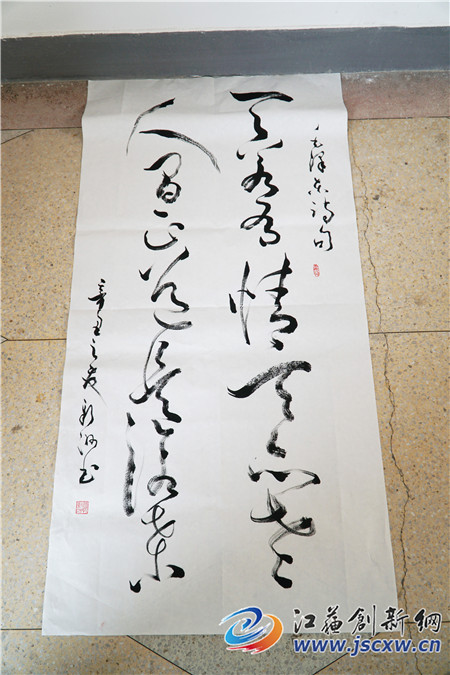 毛泽东诗句
天若有情天亦老
人间正道是沧桑
辛丑之
书
江蘇創新網
www.jscxw.cn